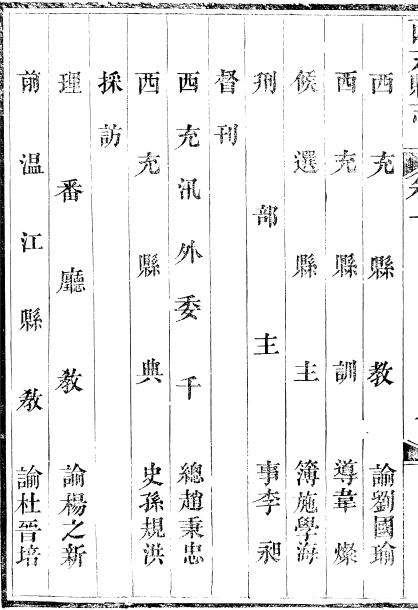 西充縣教諭劉國瑜
西充縣訓導韋燦
候選縣主簿施學海
刑部主事李昶
督刊
西充汛外委千總趙秉忠
西充縣典史孫規洪
採訪
理番廳教諭楊之新
前溫江縣教諭杜晉培